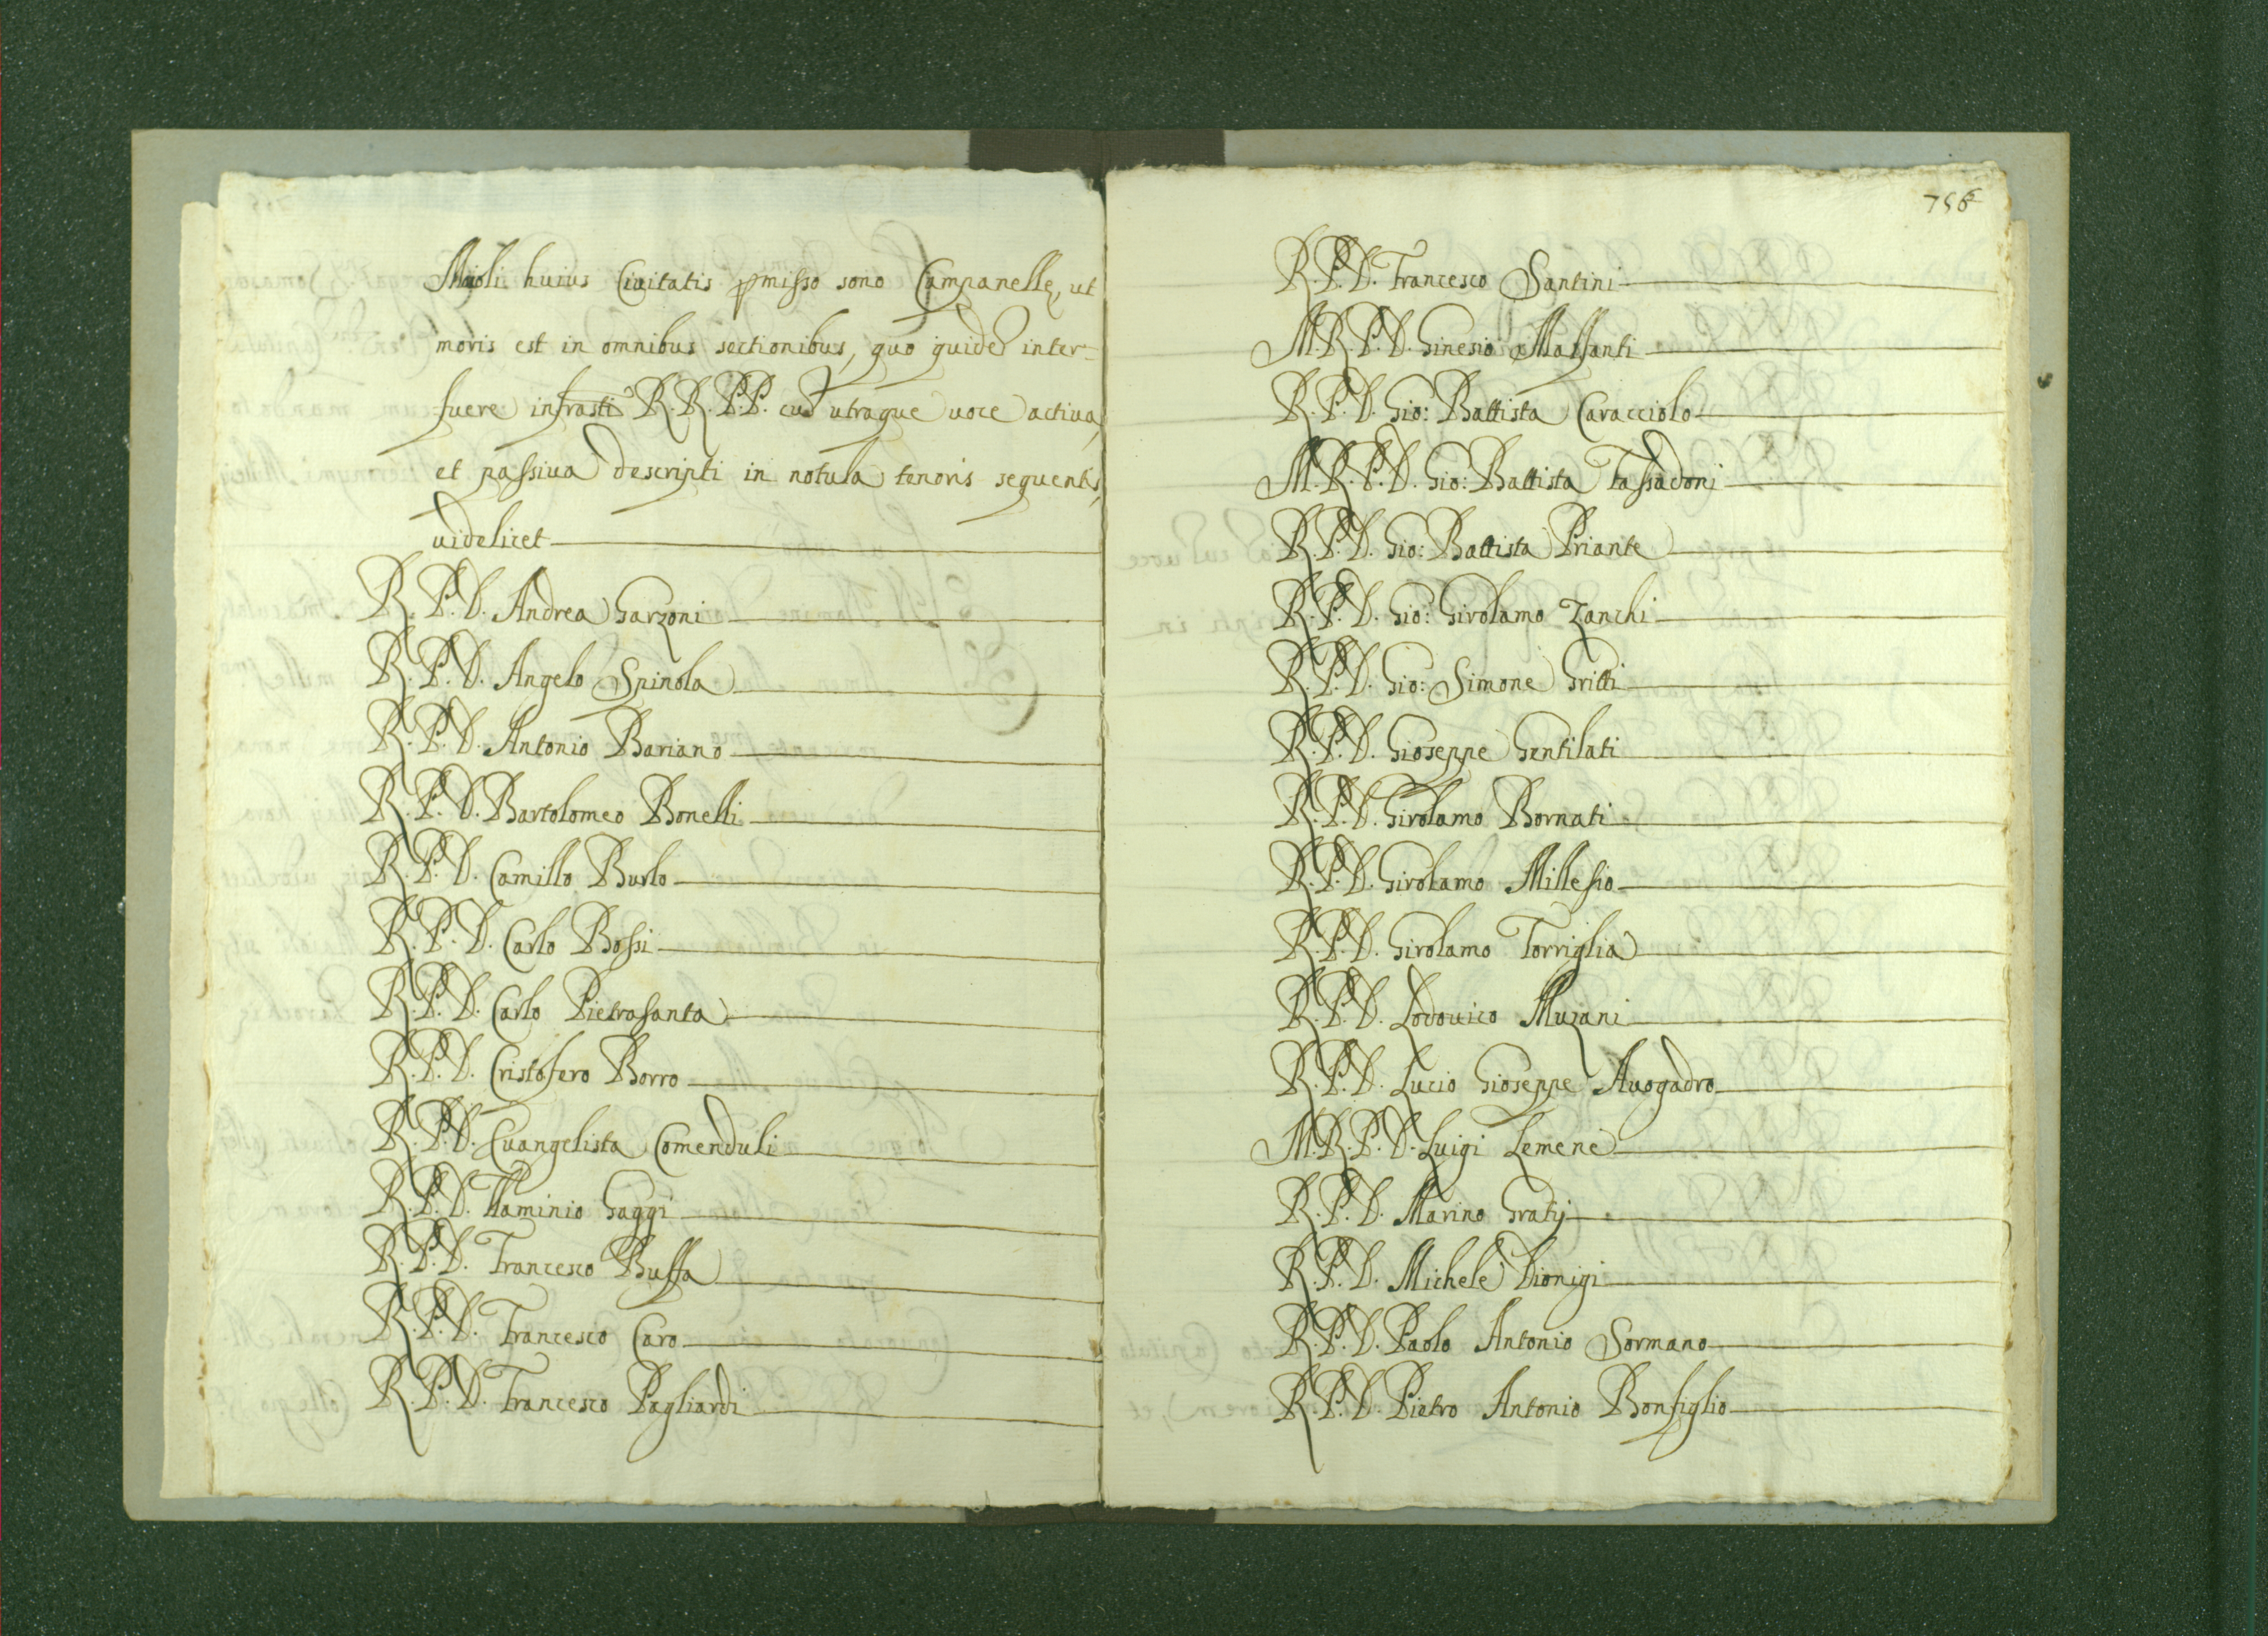 Maioli huius Ciuitatis pmisso sono Campanellę, ut
moris est in omnibus sectionibus, quo quidẽ inter-
fuere infrasti R.R. P.P. cũ utraque uoce actiua,
et passiua descripti in notula tenoris sequentis,
uidelicet
R. P. D. Andrea Garzoni
R. P. D. Angelo Spinola
R. P. D. Antonio Bariano
R. P. D. Bartolomeo Bonelli
R. P. D. Camillo Burlo
R. P. D. Carlo Bossi
R. P. D. Carlo Pietrasanta
R. P. D. Cristofero Borro
R. P. D. Euangelista Comenduli
R. P. D. Flaminio Gaggi
R. P. D. Francesco Buffa
R. P. D. Francesco Caro
R. P. D. Francesco Pagliardi
756
R. P. D. Francesco Santini
M. R. P. D. Ginesio Malfanti
R. P. D. Gio: Battista Caracciolo
M. R. P. D. Gio: Battista Tassadoni
R. P. D. Gio: Battista Priante
R. P. D. Gio: Girolamo Zanchi
R. P. D. Gio: Simone Gritti
R. P. D. Gioseppe Gentilati
R. P. D. Girolamo Bornati
R. P. D. Girolamo Millesio
R. P. D. Girolamo Torriglia
R. P. D. Lodouico Muzani
R. P. D. Lucio Gioseppe Auogadro
M. R. P. D. Luigi Lemene
R. P. D. Marino Gratij
R. P. D. Michele Dionigi
R. P. D. Paolo Antonio Sormano
R. P. D. Pietro Antonio Bonfiglio